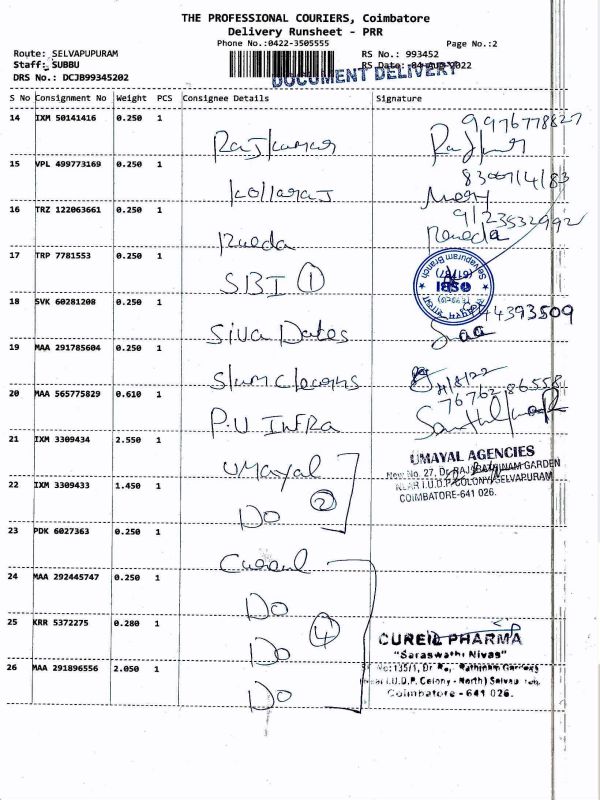 THE PROFESSIONAL COURIERS, Coimbatore
Delivery Runsheet - PRR
Phone No.:0422-3505555 Page No.:2
Route: SELVAPUPURAM RS No.: 993452
Staff: SUBBU RS Date: 04-Aug-2022
DRS No.: DCJB99345202 DOCUMENT DELIVERY
S No Consignment No Weight PCS Consignee Details Signature
14 IXM 50141416 0.250 1 Rajkumar 9976778827
15 VPL 499773169 0.250 1 Kollaraj
16 TRZ 122063661 0.250 1 9123532992
17 TRP 7781553 0.250 1 SBI 1
Selvapuram Branch
SBI
18 SVK 60281208 0.250 1 Siva Dates
19 MAA 291785604 0.250 1
20 MAA 565775829 0.610 1 P.U Infra 76762 86558
21 IXM 3309434 2.550 1 Umayal
UMAYAL AGENCIES
New No. 27, Dr. RAJARATHINAM GARDEN
NEAR I.U.D.P. COLONY, SELVAPURAM
COIMBATORE-641 026.
22 IXM 3309433 1.450 1 Do 2
23 PDK 6027363 0.250 1
24 MAA 292445747 0.250 1 Do
25 KRR 5372275 0.280 1 Do 4
CUREIL PHARMA
"Saraswathi Nivas"
26 MAA 291896556 2.050 1 Do
No:135/1, Dr. Rathinam Garden
Near I.U.D.P. Colony - North) Selvapuram
Coimbatore - 641 026.